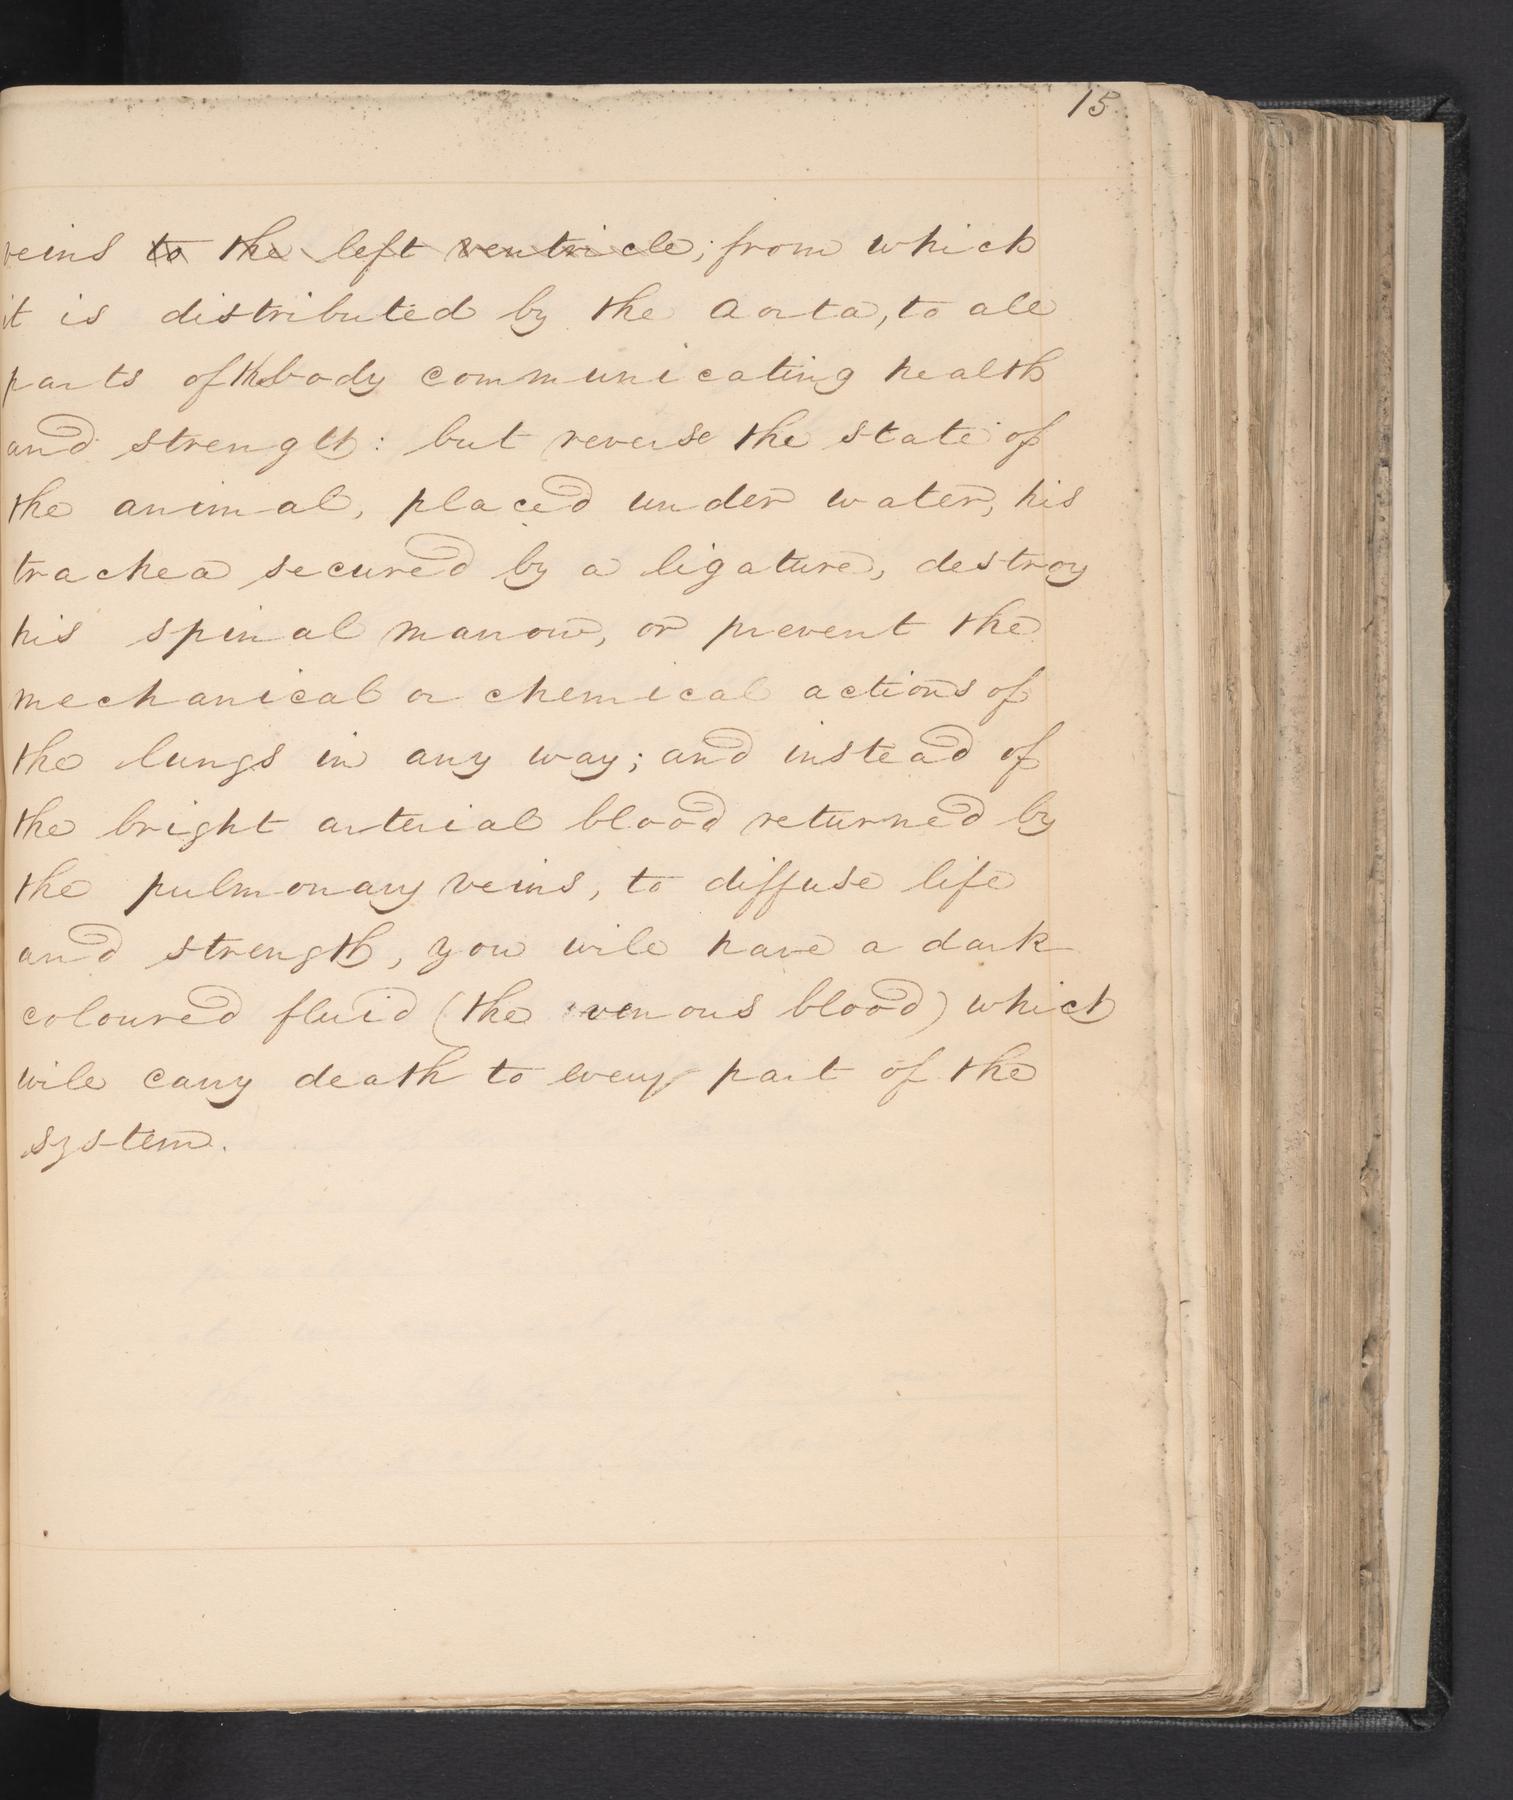 15
veins to the left ventricle; from which
it is distributed by the Aorta, to all
parts of the body communicating health
and strength: but reverse the state of
the animal, placed under water, his
trachea secured by a ligature, destroy
his spinal marrow, or prevent the
mechanical or chemical actions of
the lungs in any way; and instead of
the bright arterial blood returned by
the pulmonary veins, to diffuse life
and strength, you will have a dark
coloured fluid (the venous blood) which
will carry death to every part of the
system.